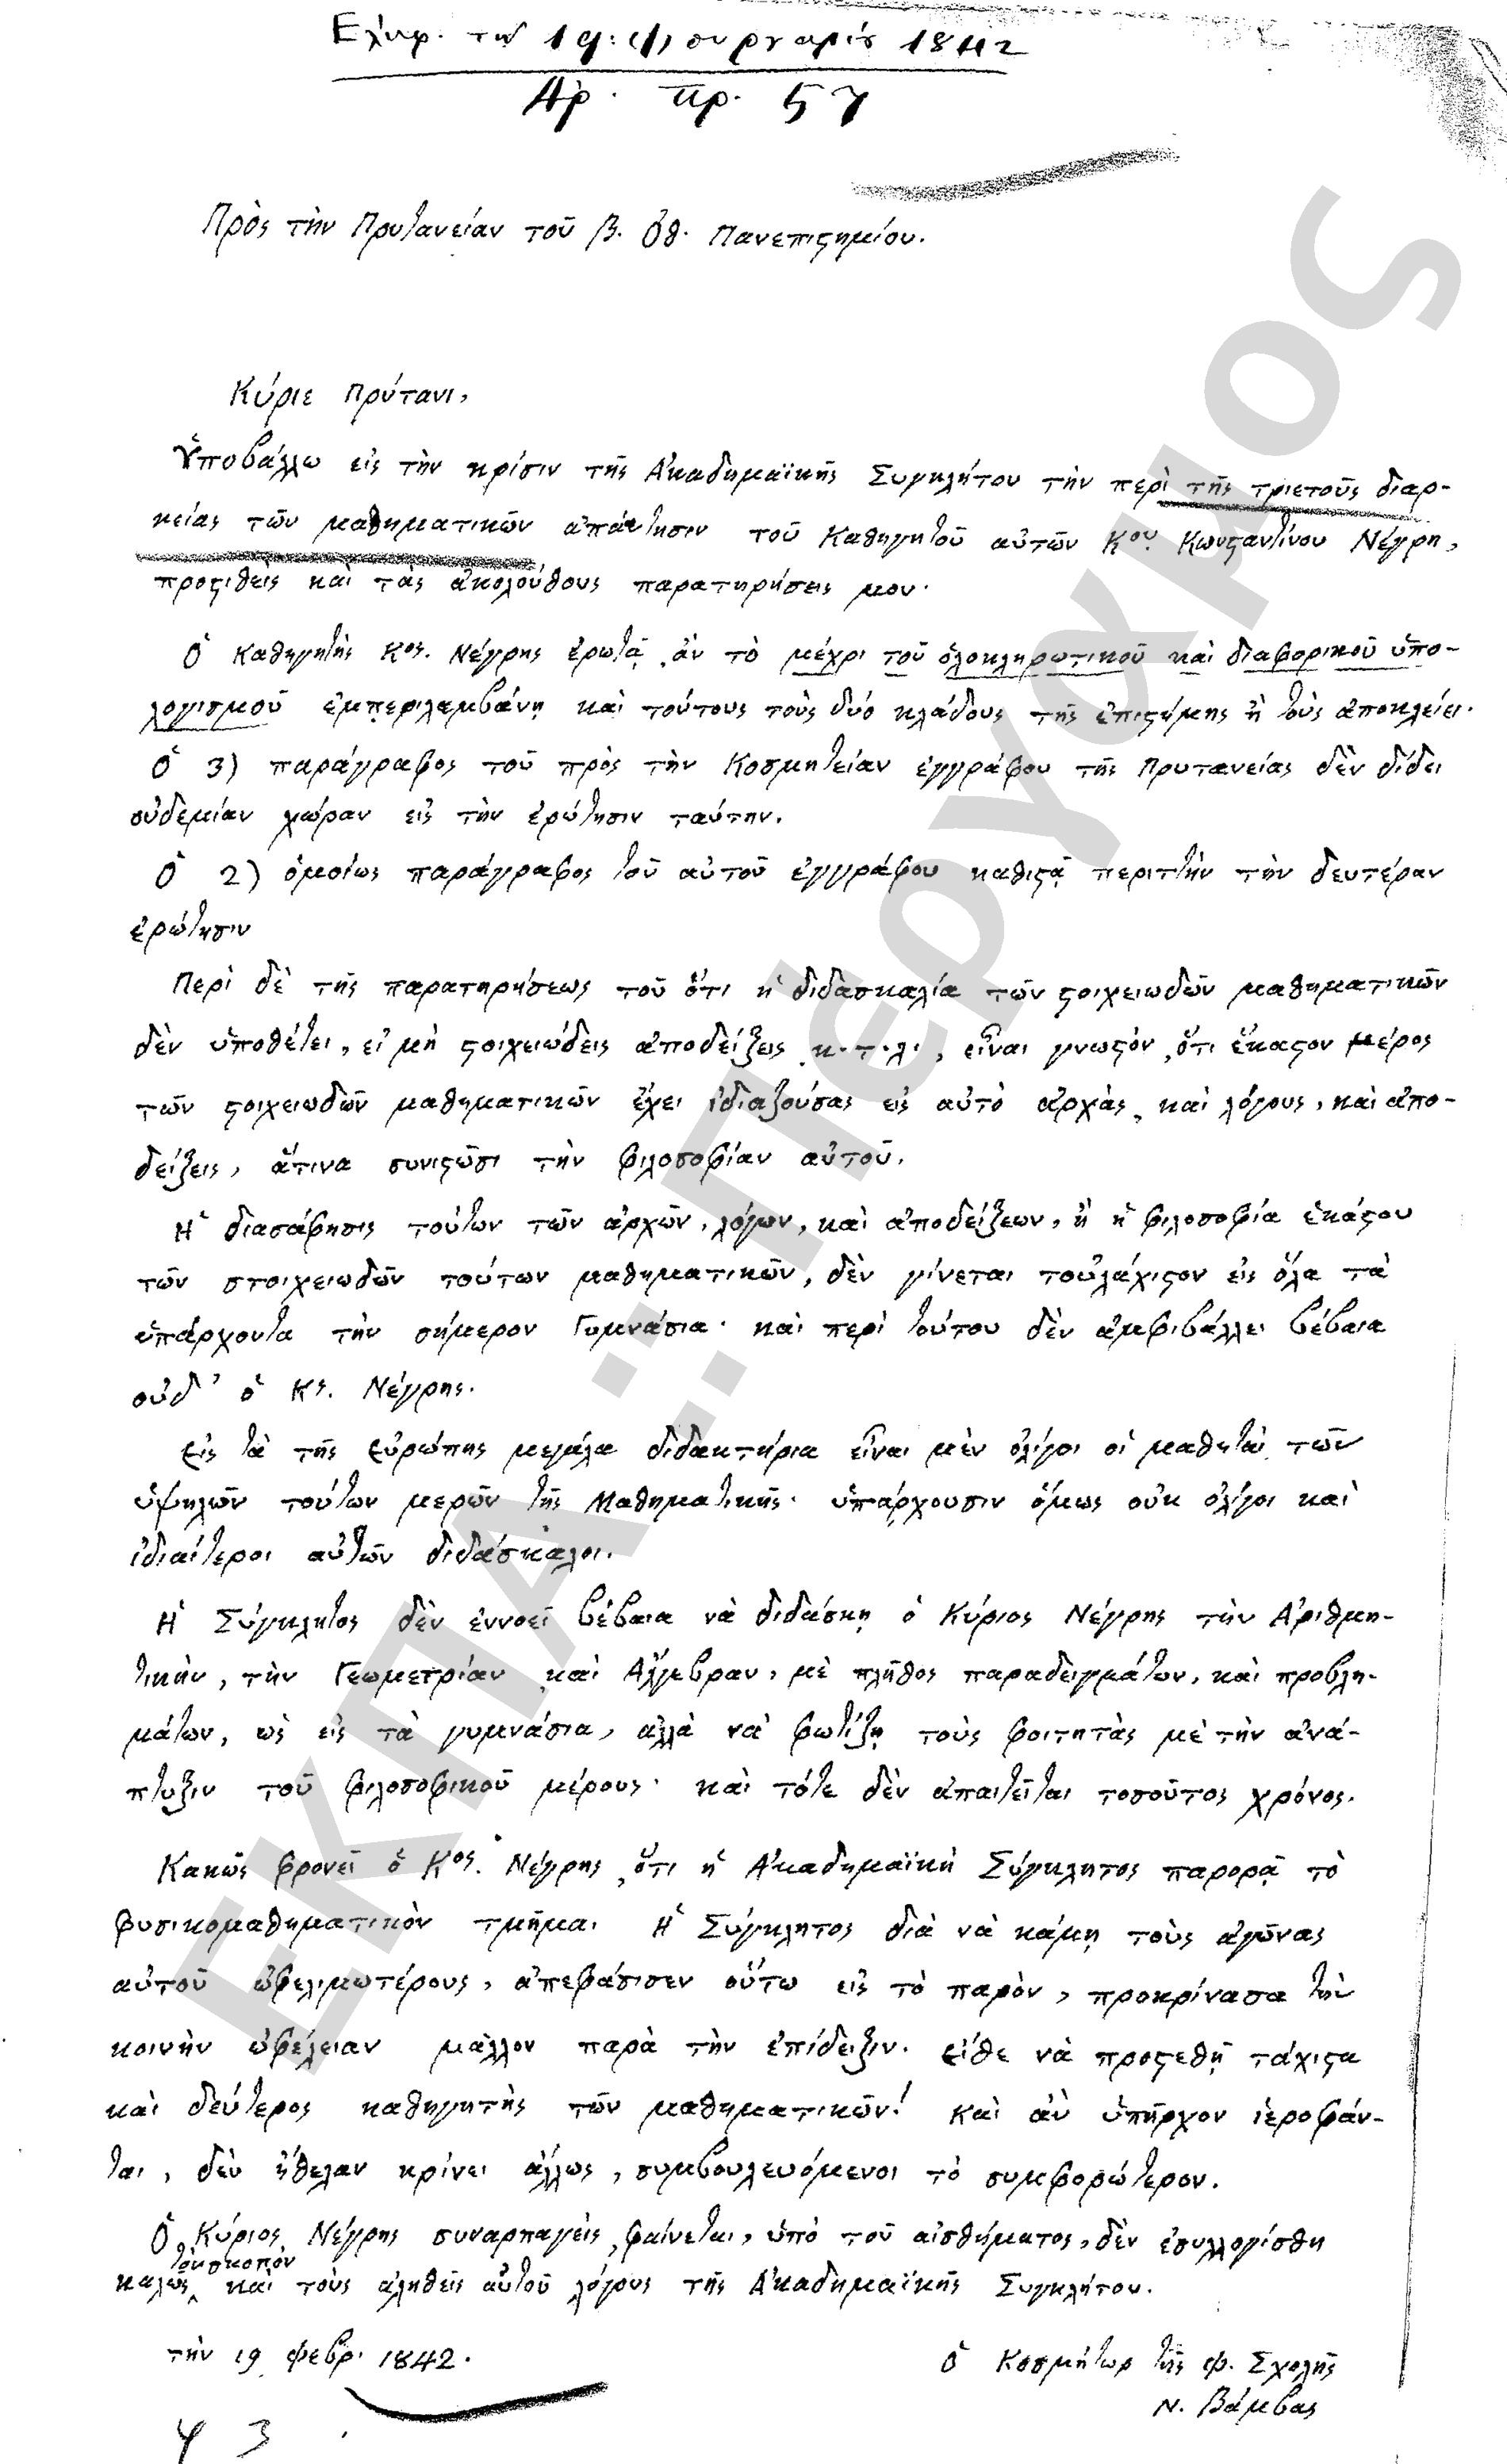 Ἐλήφ. τῇ 19: Φεβρουαρίου 1842
Ἀρ. πρ. 57
Πρὸς τὴν Πρυτανείαν τοῦ Β. Ὀθ. Πανεπιϛημίου.
Κύριε Πρύτανι,
Ὑποβάλλω εἰς τὴν κρίσιν τῆς Ἀκαδημαϊκῆς Συγκλήτου τὴν περὶ τῆς τριετοῦς διαρ-
κείας τῶν μαθηματικῶν ἀπάντησιν τοῦ Καθηγητοῦ αὐτῶν Κου. Κωνϛαντίνου Νέγρη,
προϛιθεὶς καὶ τὰς ἀκολούθους παρατηρήσεις μου.
Ὁ Καθηγητὴς Κος. Νέγρης ἐρωτᾷ, ἀν τὸ μέχρι τοῦ ὁλοκληρωτικοῦ καὶ διαφορικοῦ ὑπο-
λογισμοῦ ἐμπεριλαμβάνῃ καὶ τούτους τοὺς δύο κλάδους τῆς ἐπιϛήμης ἢ τοὺς ἀποκλείει.
Ὁ 3) παράγραφος τοῦ πρὸς τὴν Κοσμητείαν ἐγγράφου τῆς Πρυτανείας δὲν δίδει
οὐδεμίαν χώραν εἰς τὴν ἐρώτησιν ταύτην.
Ὁ 2) ὁμοίως παράγραφος τοῦ αὐτοῦ ἐγγράφου καθιϛᾷ περιττὴν τὴν δευτέραν
ἐρώτησιν
Περὶ δὲ τῆς παρατηρήσεως τοῦ ὅτι ἡ διδασκαλία τῶν ϛοιχειωδῶν μαθηματικῶν
δὲν ὑποθέτει, εἰ μὴ ϛοιχειώδεις ἀποδείξεις κ.τ.λ., εἶναι γνωϛὸν, ὅτι ἕκαϛον μέρος
τῶν ϛοιχειωδῶν μαθηματικῶν ἔχει ἰδιαζούσας εἰς αὐτὸ ἀρχὰς, καὶ λόγους, καὶ ἀπο-
δείξεις, ἅτινα συνιϛῶσι τὴν φιλοσοφίαν αὐτοῦ.
Ἡ διασάφησις τούτων τῶν ἀρχῶν, λόγων, καὶ ἀποδείξεων, ἢ ἡ φιλοσοφία ἑκάϛου
τῶν στοιχειωδῶν τούτων μαθηματικῶν, δὲν γίνεται τοὐλάχιϛον εἰς ὅλα τὰ
ὑπάρχοντα τὴν σήμερον Γυμνάσια· καὶ περὶ τούτου δὲν ἀμφιβάλλει βέβαια
οὐδ' ὁ Κς. Νέγρης.
Εἰς τὰ τῆς Εὐρώπης μεγάλα διδακτήρια εἶναι μὲν ὀλίγοι οἱ μαθηταὶ τῶν
ὑψηλῶν τούτων μερῶν τῆς Μαθηματικῆς· ὑπάρχουσιν ὅμως οὐκ ὀλίγοι καὶ
ἰδιαίτεροι αὐτῶν διδάσκαλοι.
Ἡ Σύγκλητος δὲν ἐννοεῖ βέβαια νὰ διδάσκῃ ὁ Κύριος Νέγρης τὴν Ἀριθμη-
τικὴν, τὴν Γεωμετρίαν καὶ Ἄλγεβραν, μὲ πλῆθος παραδειγμάτων, καὶ προβλη-
μάτων, ὡς εἰς τὰ γυμνάσια, ἀλλὰ νὰ φωτίζῃ τοὺς φοιτητὰς μὲ τὴν ἀνά-
πτυξιν τοῦ φιλοσοφικοῦ μέρους· καὶ τότε δὲν ἀπαιτεῖται τοσοῦτος χρόνος.
Κακῶς φρονεῖ ὁ Κος. Νέγρης, ὅτι ἡ Ἀκαδημαϊκὴ Σύγκλητος παρορᾷ τὸ
φυσικομαθηματικὸν τμῆμα. Ἡ Σύγκλητος διὰ νὰ κάμῃ τοὺς ἀγῶνας
αὐτοῦ ὠφελιμωτέρους, ἀπεφάσισεν οὕτω εἰς τὸ παρὸν, προκρίνασα τὴν
κοινὴν ὠφέλειαν μᾶλλον παρὰ τὴν ἐπίδειξιν. εἴθε νὰ προϛεθῇ τάχιϛα
καὶ δεύτερος καθηγητὴς τῶν μαθηματικῶν! καὶ ἀν ὑπῆρχον ἱεροφάν-
ται, δὲν ἤθελαν κρίνει ἄλλως, συμβουλευόμενοι τὸ συμφορώτερον.
Ὁ Κύριος Νέγρης συναρπαγεὶς, φαίνεται, ὑπὸ τοῦ αἰσθήματος, δὲν ἐσυλλογίσθη
καλῶς τὸν σκοπὸν καὶ τοὺς ἀληθεῖς αὐτοῦ λόγους τῆς Ἀκαδημαϊκῆς Συγκλήτου.
τὴν 19 Φεβρ. 1842.
Ὁ Κοσμήτωρ τῆς Φ. Σχολῆς
Ν. Βάμβας
ΕΚΠΑ: Πέργαμος